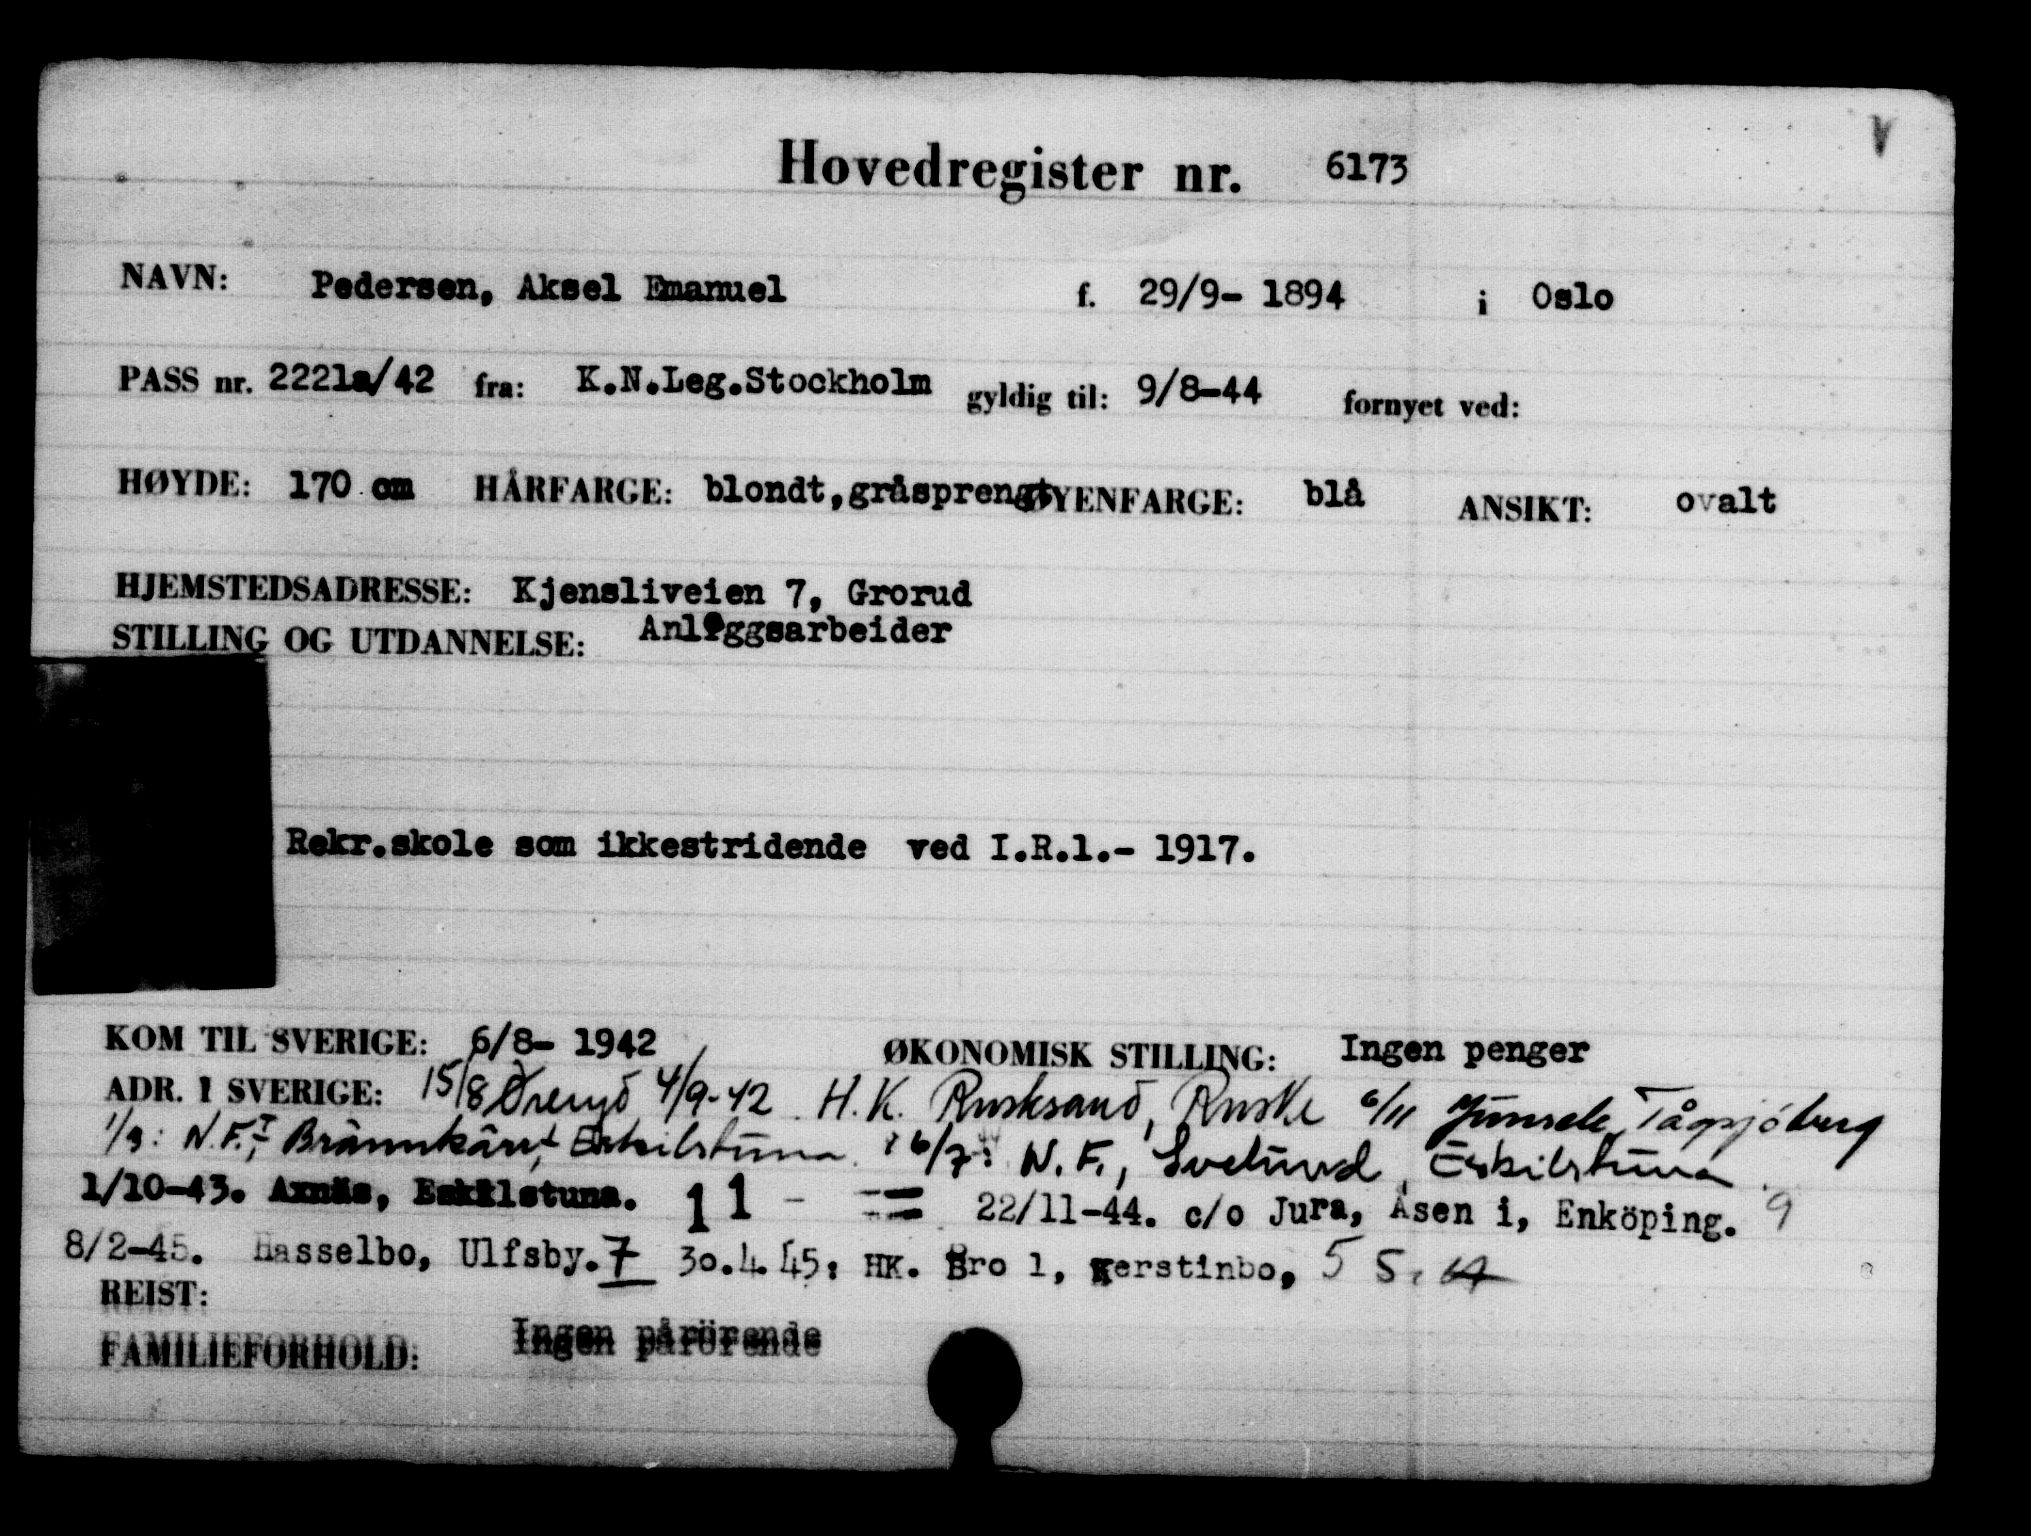 V
Hovedregister nr. 6173
NAVN: Pedersen, Aksel Emanuel f. 29/9- 1894 i Oslo
PASS nr. 2221a/42 fra: K.N.Leg.Stockholm gyldig til: 9/8-44 fornyet ved:
HØYDE: 170 cm HÅRFARGE: blondt,gråsprengt ØYENFARGE: blå ANSIKT: ovalt
HJEMSTEDSADRESSE: Kjensliveien 7, Grorud
STILLING OG UTDANNELSE: Anleggsarbeider
Rekr.skole som ikkestridende ved I.R.1.- 1917.
KOM TIL SVERIGE: 6/8- 1942 ØKONOMISK STILLING: Ingen penger
ADR. I SVERIGE: 15/8 Öreryd 4/9-42 H.K. Rusksand, Ruske 6/11 Junsele, Tågsjöberg
1/3: N.F.I, Brännkärr, Eskilstuna. 16/7: N.F., Svelund, Eskilstuna.
1/10-43. Axnäs, Eskilstuna. 11 - == 22/11-44. c/o Jura, Åsen i, Enköping. 9
8/2-45. Hasselbo, Ulfsby. 7 30.4.45: HK. Bro 1, Kerstinbo, 5 5.
REIST:
FAMILIEFORHOLD: Ingen pårörende